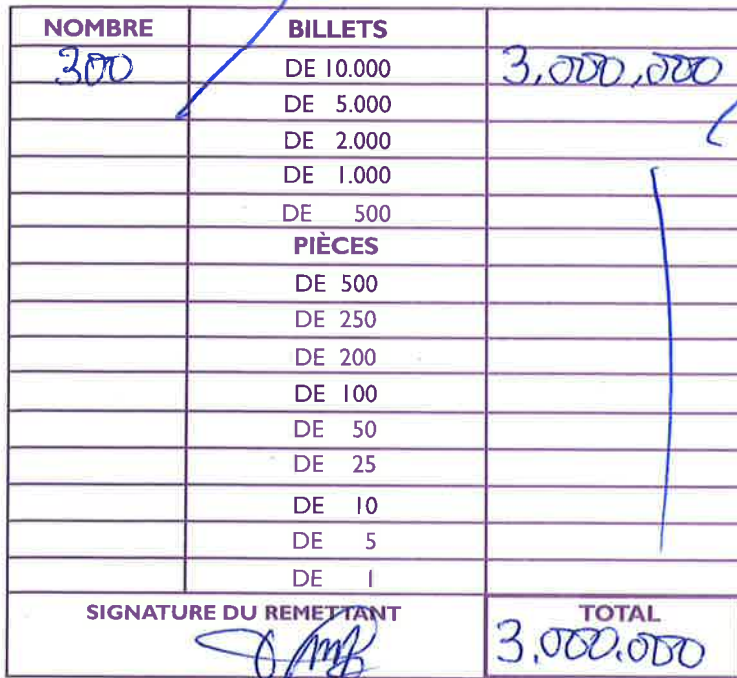 NOMBRE BILLETS
300 DE 10.000 3,000,000
DE 5.000
DE 2.000
DE 1.000
DE 500
PIÈCES
DE 500
DE 250
DE 200
DE 100
DE 50
DE 25
DE 10
DE 5
DE 1
SIGNATURE DU REMETTANT TOTAL
3.000.000